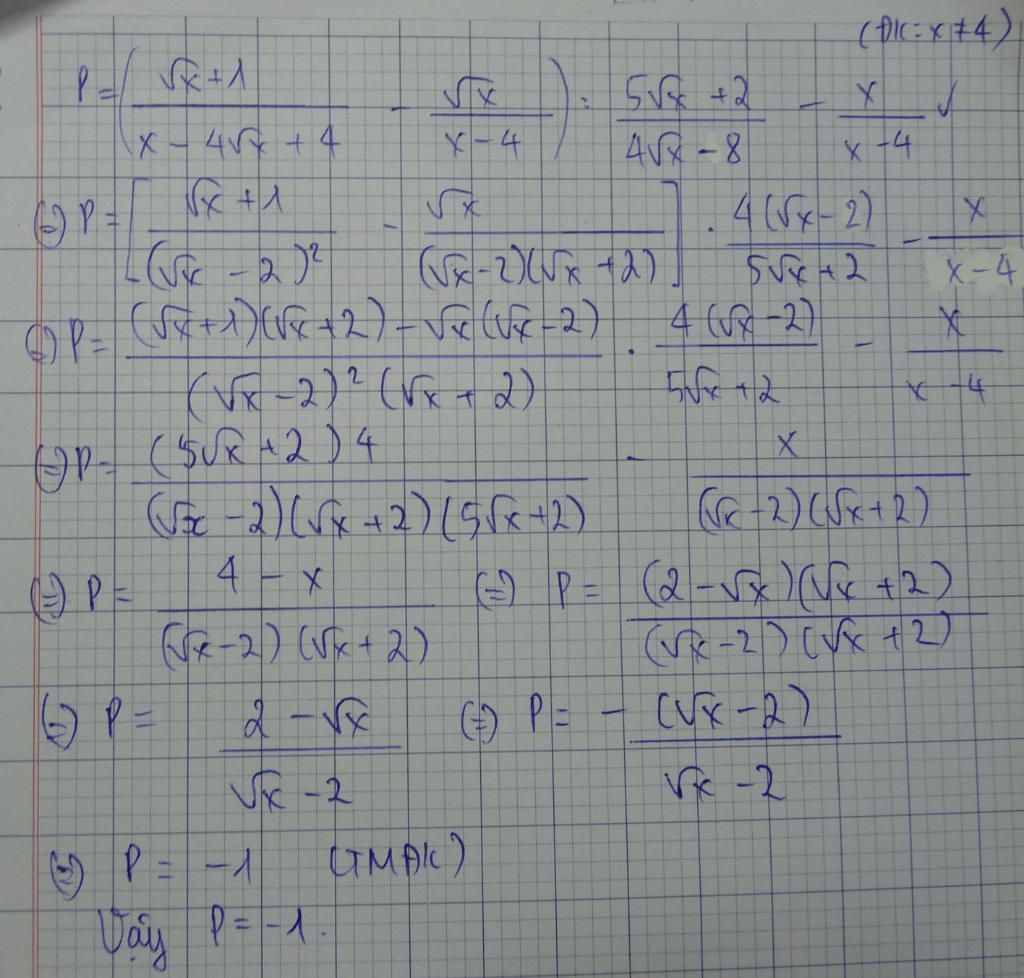 (ĐK: x ≠ 4)
P = ( (√x + 1)/(x - 4√x + 4) - √x/(x - 4) ) : (5√x + 2)/(4√x - 8) - x/(x - 4) ✓
(=) P = [ (√x + 1)/(√x - 2)² - √x/((√x - 2)(√x + 2)) ] . 4(√x - 2)/(5√x + 2) - x/(x - 4)
(=) P = ((√x + 1)(√x + 2) - √x(√x - 2))/((√x - 2)²(√x + 2)) . 4(√x - 2)/(5√x + 2) - x/(x - 4)
(=) P = (5√x + 2)4/((√x - 2)(√x + 2)(5√x + 2)) - x/((√x - 2)(√x + 2))
(=) P = (4 - x)/((√x - 2)(√x + 2)) (=) P = (2 - √x)(√x + 2)/((√x - 2)(√x + 2))
(=) P = (2 - √x)/(√x - 2) (=) P = - (√x - 2)/(√x - 2)
(=) P = -1 (TMĐK)
Vậy P = -1.